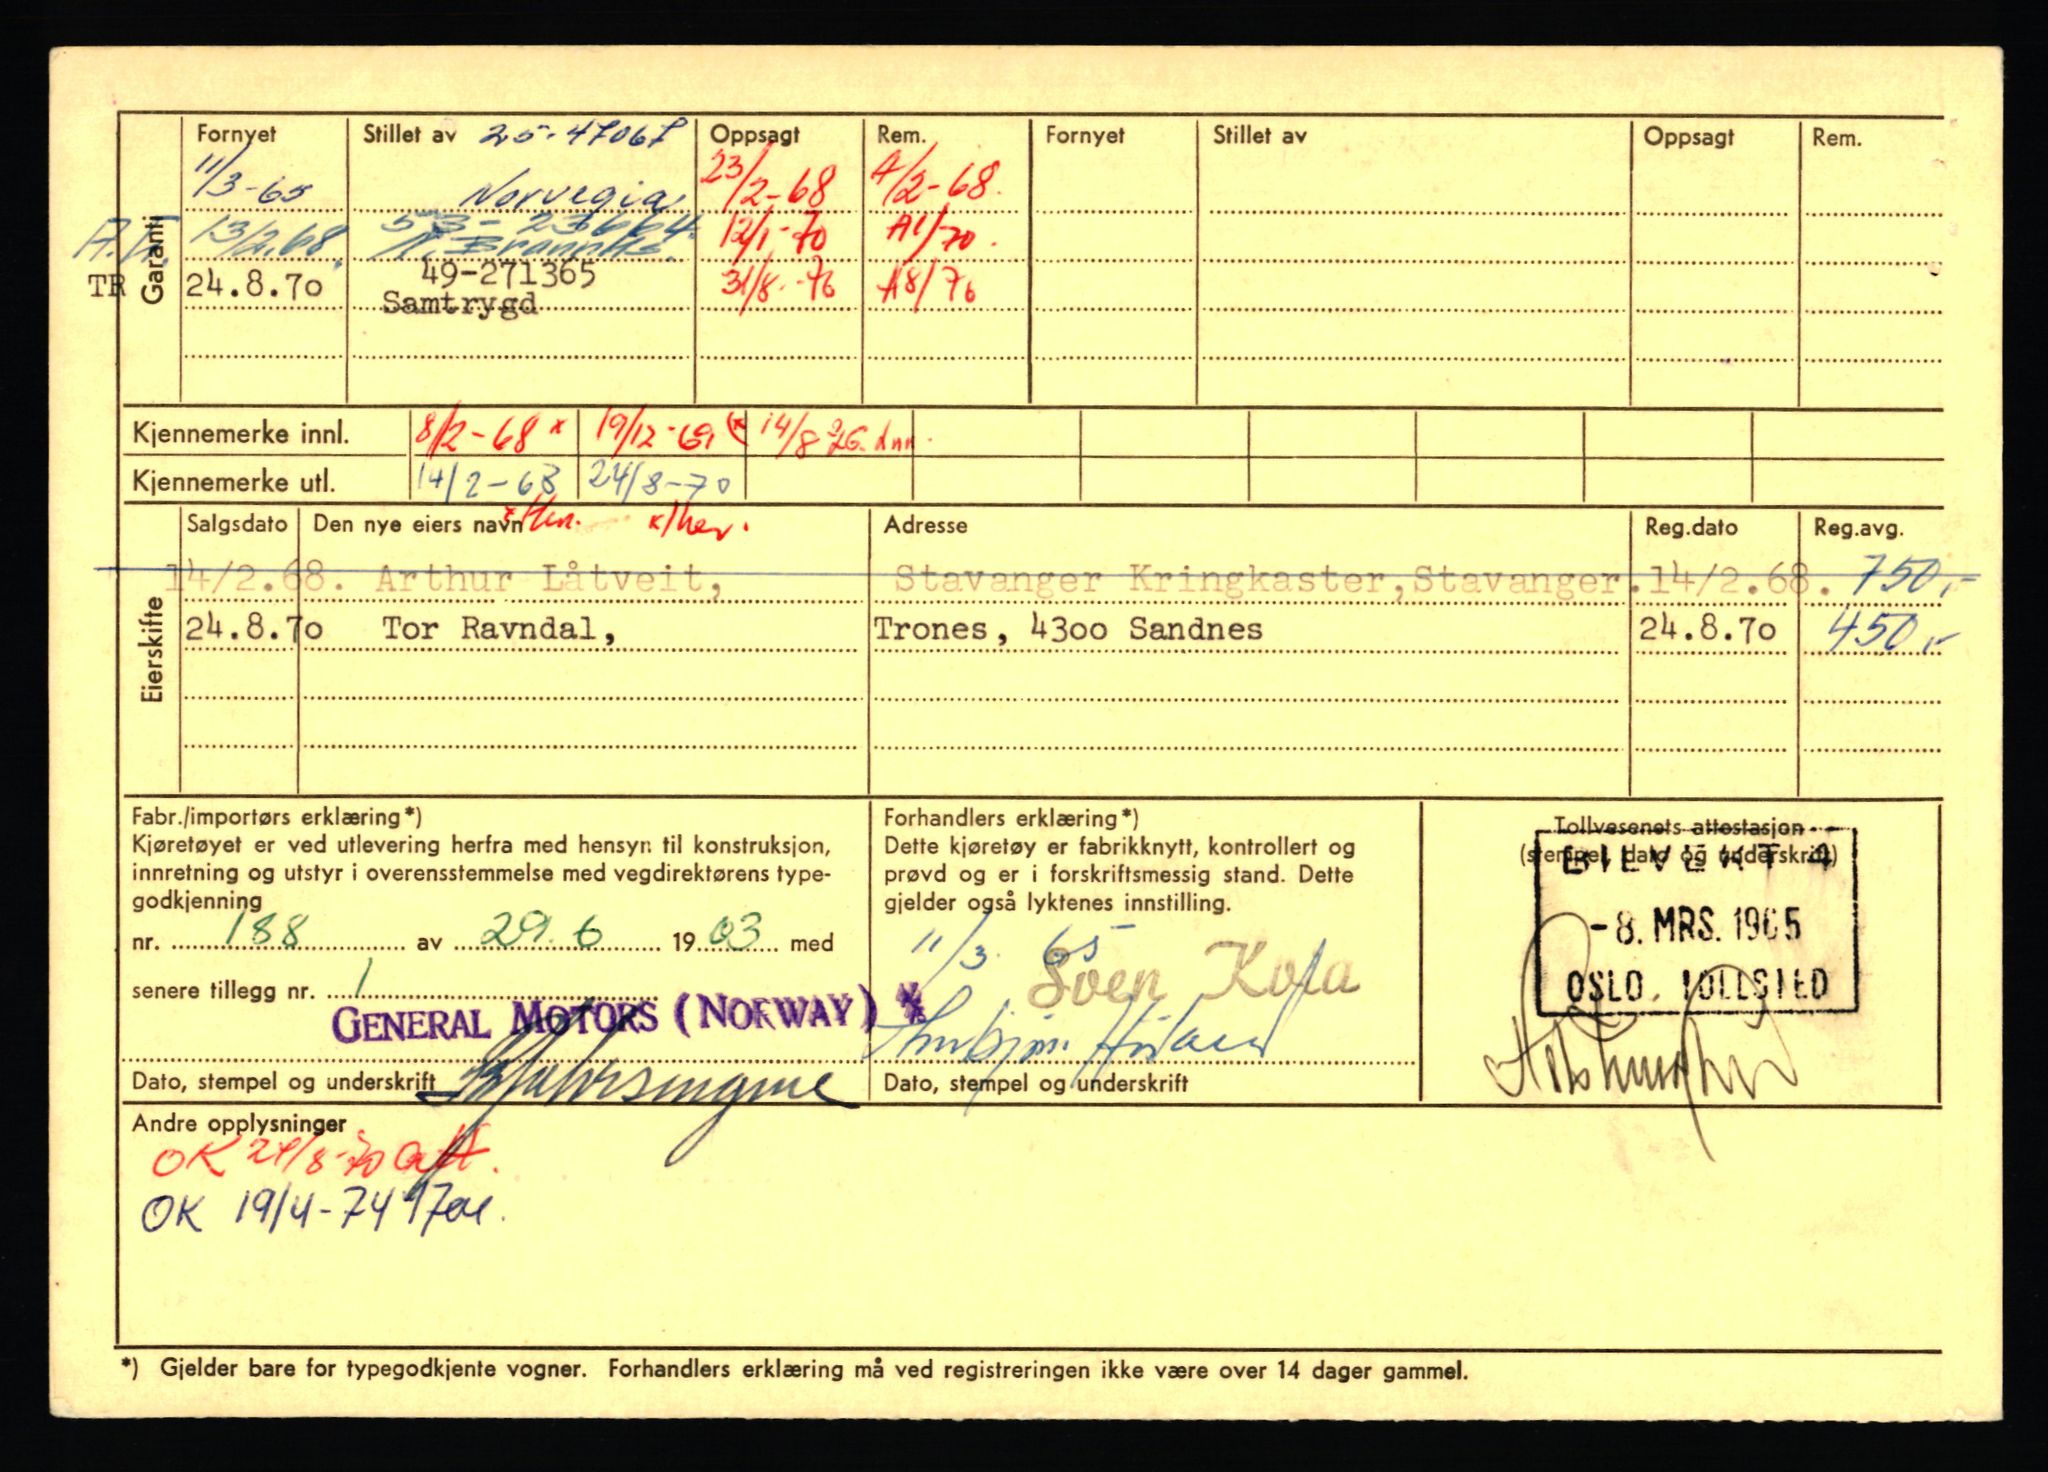 Garanti
Fornyet Stillet av 25-47067 Oppsagt Rem. Fornyet Stillet av Oppsagt Rem.
11/3-65 Norvegia 23/2-68 A/2-68.
13/2.68. 53-23664. 12/1-70 A1/70.
TR 24.8.70 49-271365 31/8-76 A8/76
Samtrygd
Kjennemerke innl. 8/2-68 x 19/12-69 (x 14/8 76.
Kjennemerke utl. 14/2-68 24/8-70
Eierskifte
Salgsdato Den nye eiers navn Adresse Reg.dato Reg.avg.
14/2.68. Arthur Låtveit, Stavanger Kringkaster,Stavanger.14/2.68. 750,-
24.8.70 Tor Ravndal, Trones, 4300 Sandnes 24.8.70 450,-
Fabr./importørs erklæring*)
Kjøretøyet er ved utlevering herfra med hensyn til konstruksjon,
innretning og utstyr i overensstemmelse med vegdirektørens type-
godkjenning
nr. 188 av 29.6 1963 med
senere tillegg nr. 1
GENERAL MOTORS (NORWAY) A/S
Dato, stempel og underskrift
Forhandlers erklæring*)
Dette kjøretøy er fabrikknytt, kontrollert og
prøvd og er i forskriftsmessig stand. Dette
gjelder også lyktenes innstilling.
11/3. 65
Dato, stempel og underskrift
Tollvesenets attestasjon
(stempel, dato og underskrift)
-8. MRS. 1965
OSLO TOLLSTED
Andre opplysninger
OK 24/8-70
OK 19/4-74
*) Gjelder bare for typegodkjente vogner. Forhandlers erklæring må ved registreringen ikke være over 14 dager gammel.